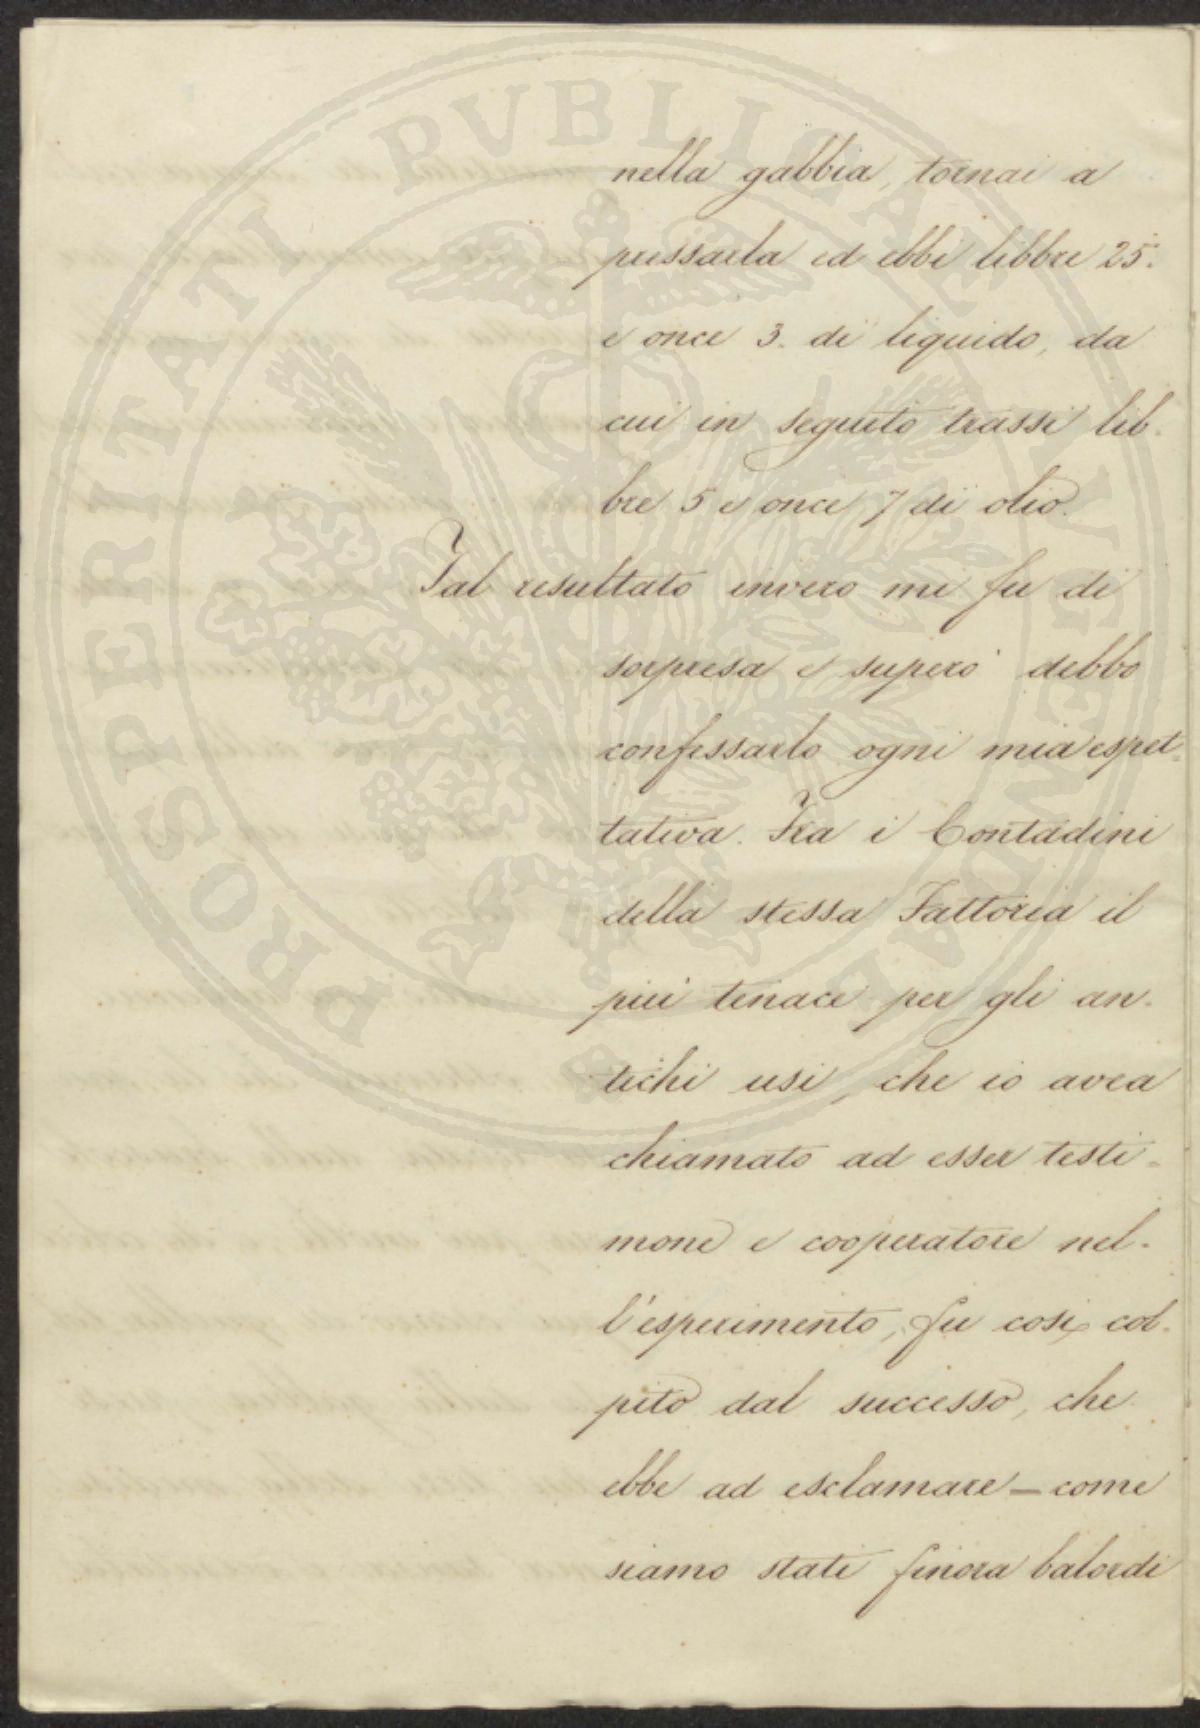 nella gabbia, tornai a
pressarla ed ebbi libbre 25.
e once 3. di liquido, da
cui in seguito trassi lib-
bre 5 e once 7 di olio.
Tal resultato invero mi fu di
sorpresa e superò debbo
confessarlo ogni mia espet-
tativa. Fra i Contadini
della stessa Fattoria il
più tenace per gli an-
tichi usi, che io avea
chiamato ad esser testi-
mone e cooperatore nel-
l'esperimento, fu così col-
pito dal successo, che
ebbe ad esclamare — come
siamo stati finora balordi
PROSPERITATI PVBLICAE AVGENDAE